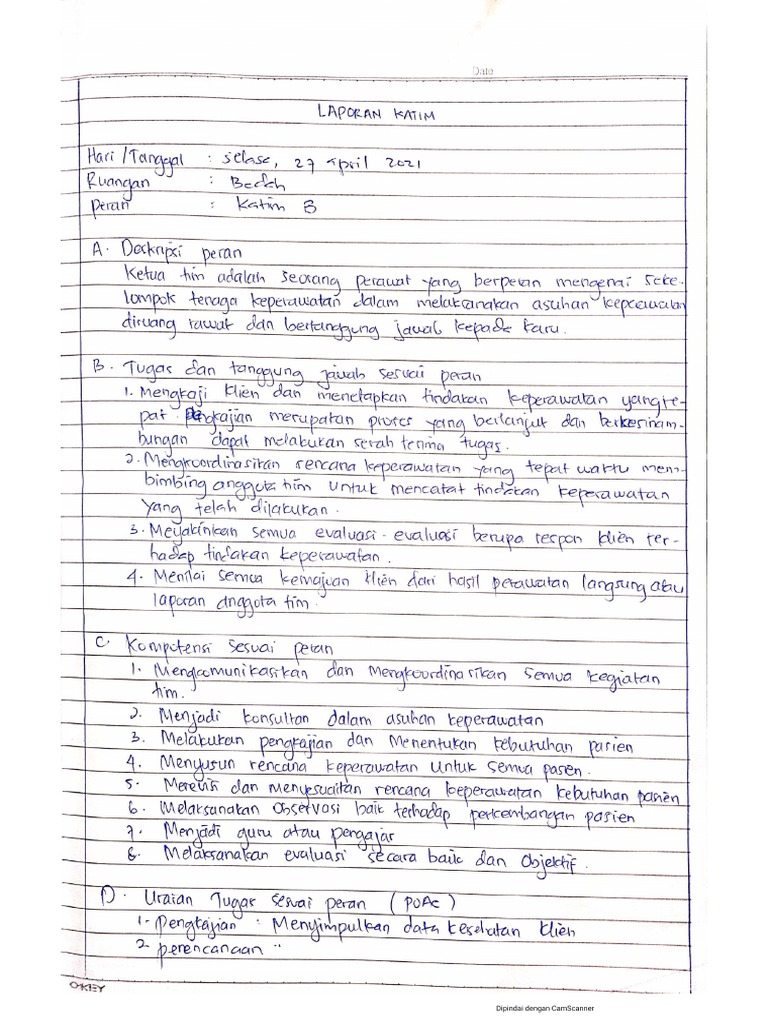 Date
LAPORAN KATIM
Hari /Tanggal : selasa, 27 April 2021
Ruangan : Bedah
Peran : Katim B
A. Deskripsi peran
Ketua tim adalah seorang perawat yang berperan mengenai seke-
lompok tenaga keperawatan dalam melaksanakan asuhan keperawatan
diruang rawat dan bertanggung jawab kepada karu.
B. Tugas dan tanggung jawab sesuai peran
1. Mengkaji klien dan menetapkan tindakan keperawatan yang te-
pat. pengkajian merupakan proses yang berlanjut dan berkesinam-
bungan dapat melakukan serah terima tugas.
2. Mengkoordinasikan rencana keperawatan yang tepat waktu mem-
bimbing anggota tim untuk mencatat tindakan keperawatan
yang telah dilakukan.
3. Meyakinkan semua evaluasi-evaluasi berupa respon klien ter-
hadap tindakan keperawatan.
4. Menilai semua kemajuan klien dari hasil perawatan langsung atau
laporan anggota tim.
C. Kompetensi sesuai peran
1. Mengcomunikasikan dan mengkoordinasikan semua kegiatan
tim.
2. Menjadi konsultan dalam asuhan keperawatan
3. Melakukan pengkajian dan Menentukan kebutuhan pasien
4. Menyusun rencana keperawatan untuk semua pasen.
5. Merevisi dan menyesuaikan rencana keperawatan kebutuhan pasien
6. Melaksanakan observasi baik terhadap perkembangan pasien
7. Menjadi guru atau pengajar
8. Melaksanakan evaluasi secara baik dan Objektif.
D. Uraian Tugas sesuai peran (POAC)
1. Pengkajian : Menyimpulkan data kesehatan klien
2. perencanaan "
OKEY
Dipindai dengan CamScanner